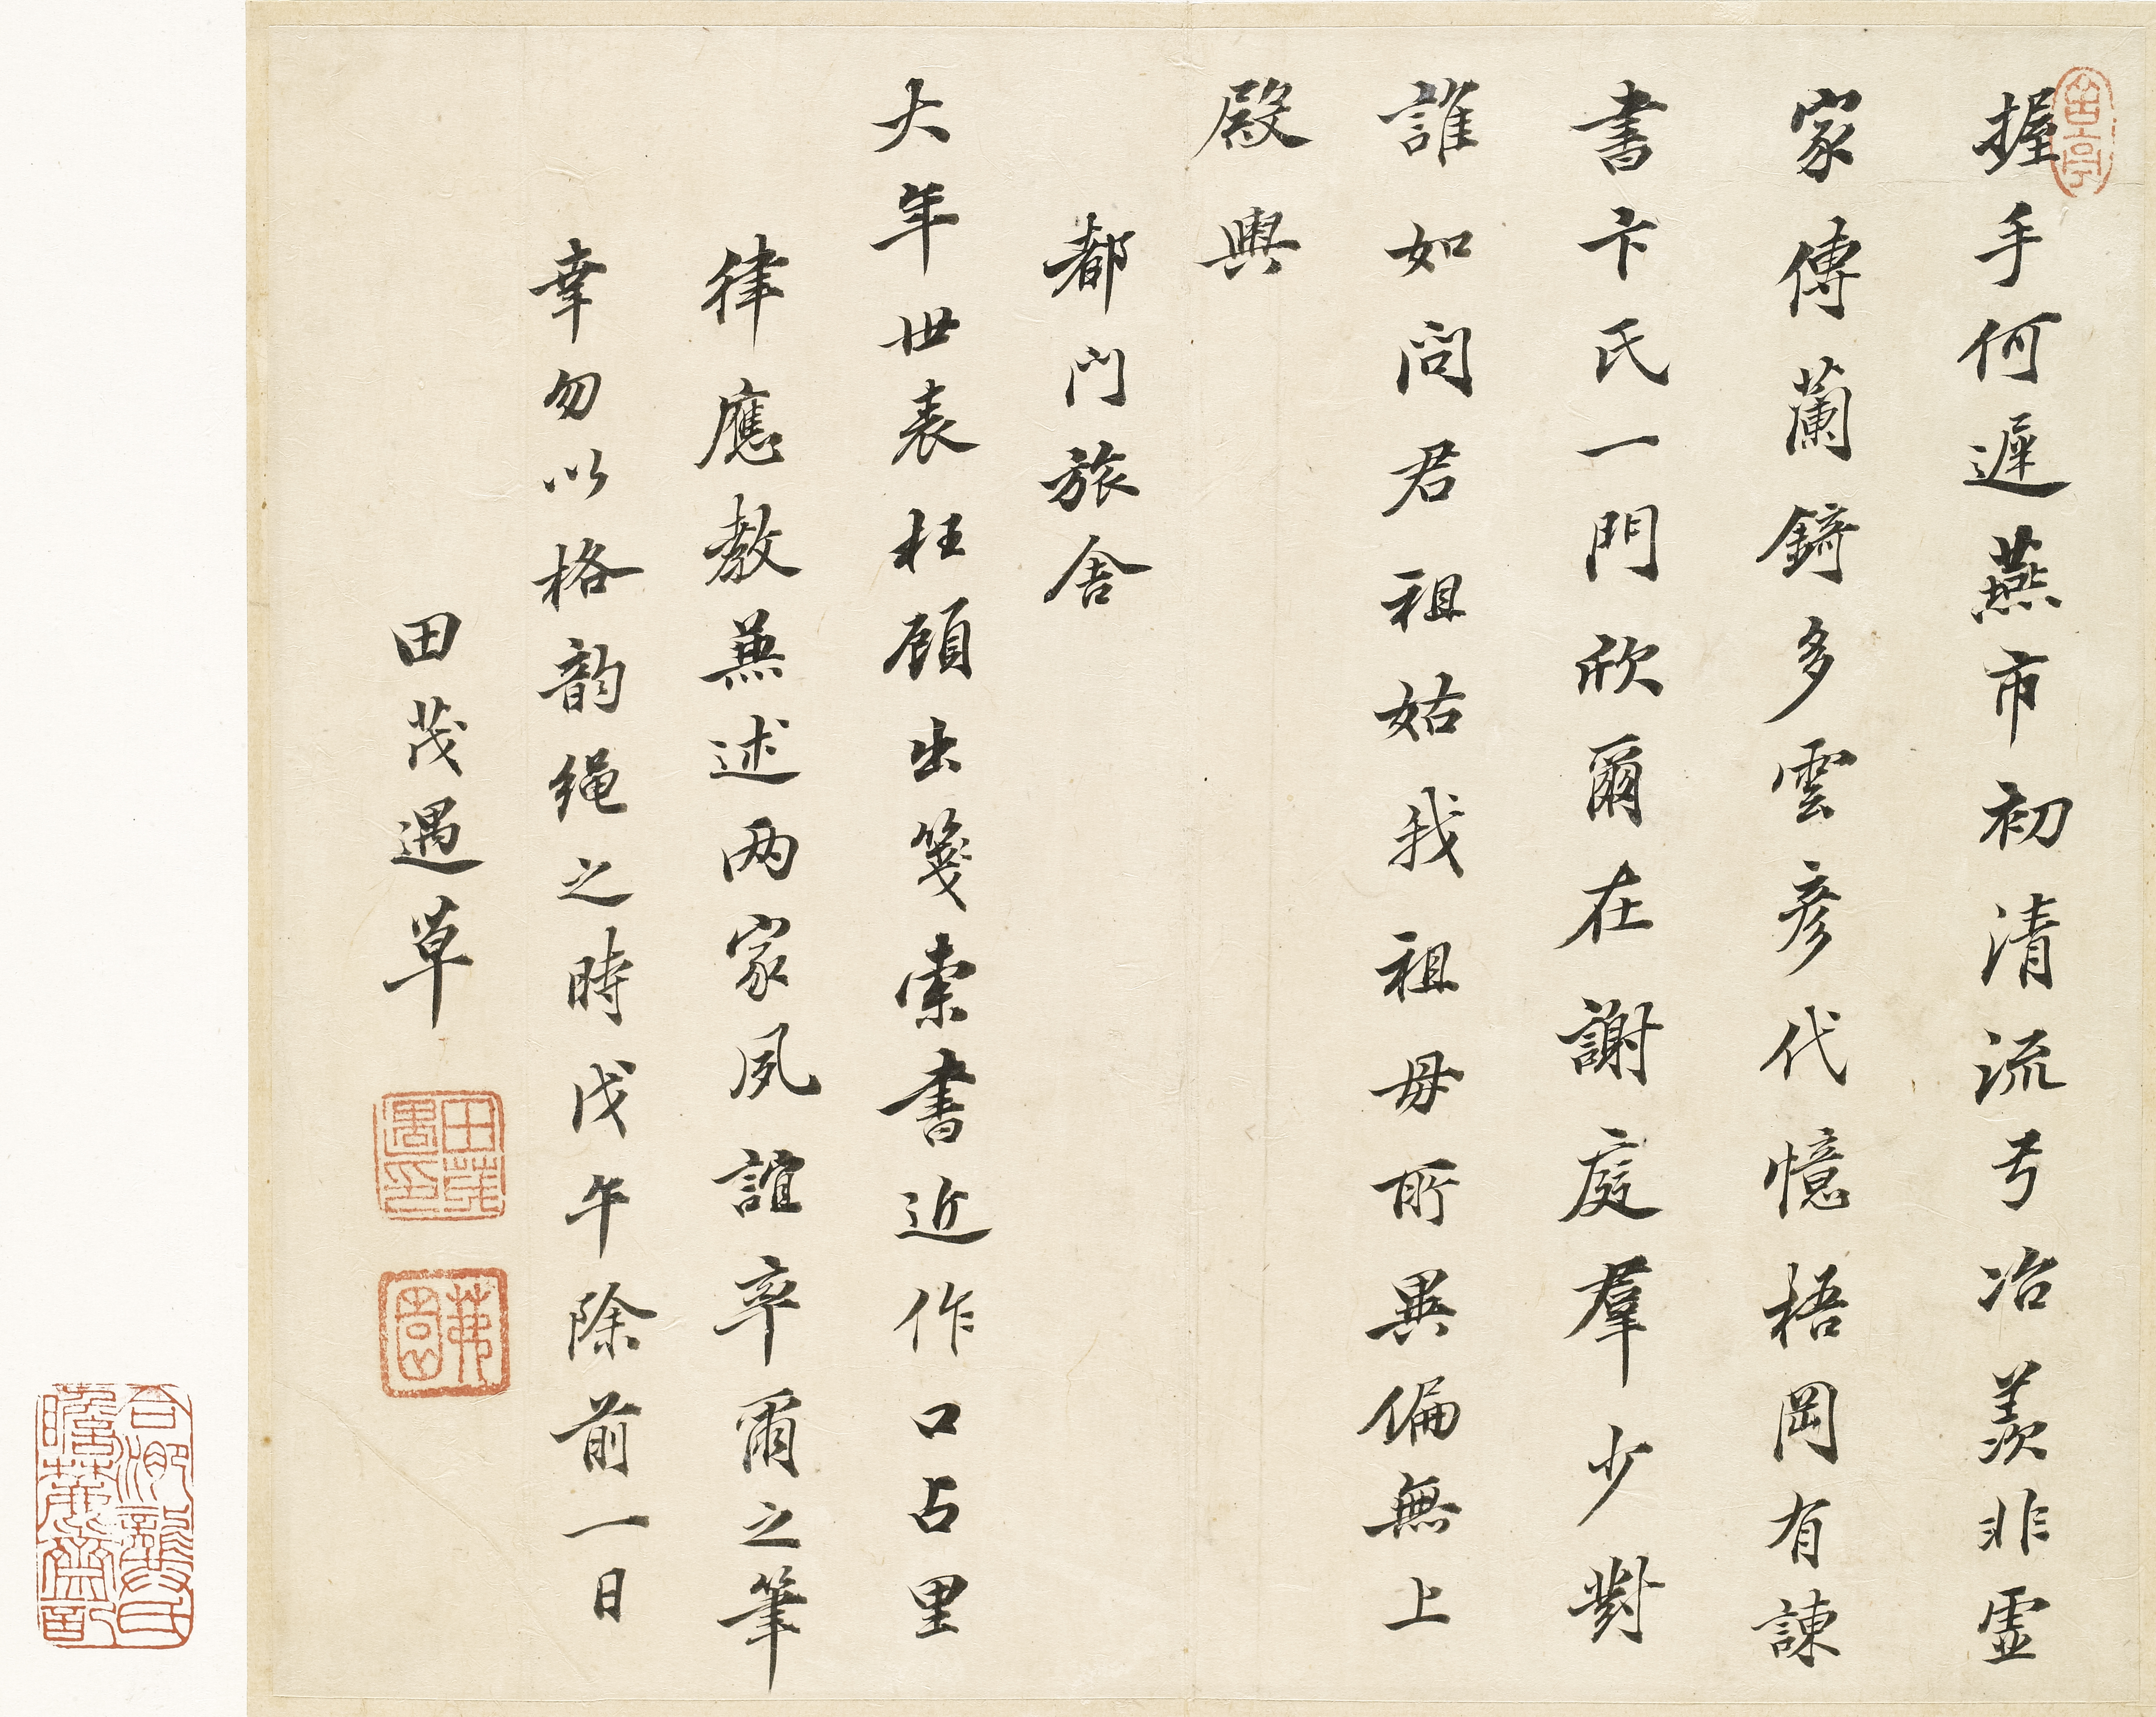 握手何遲燕市初清流弓冶羨非虛
家傳蘭錡多雲彥代憶梧岡有諫
書卞氏一門欣爾在謝庭羣少對
誰如問君祖姑我祖母所異偏無上
殿輿
都門旅舍
大年世表枉顧出箋索書近作口占里
律應教兼述两家夙誼卒爾之筆
幸勿以格韵绳之時戊午除前一日
田茂遇草
田茂遇印